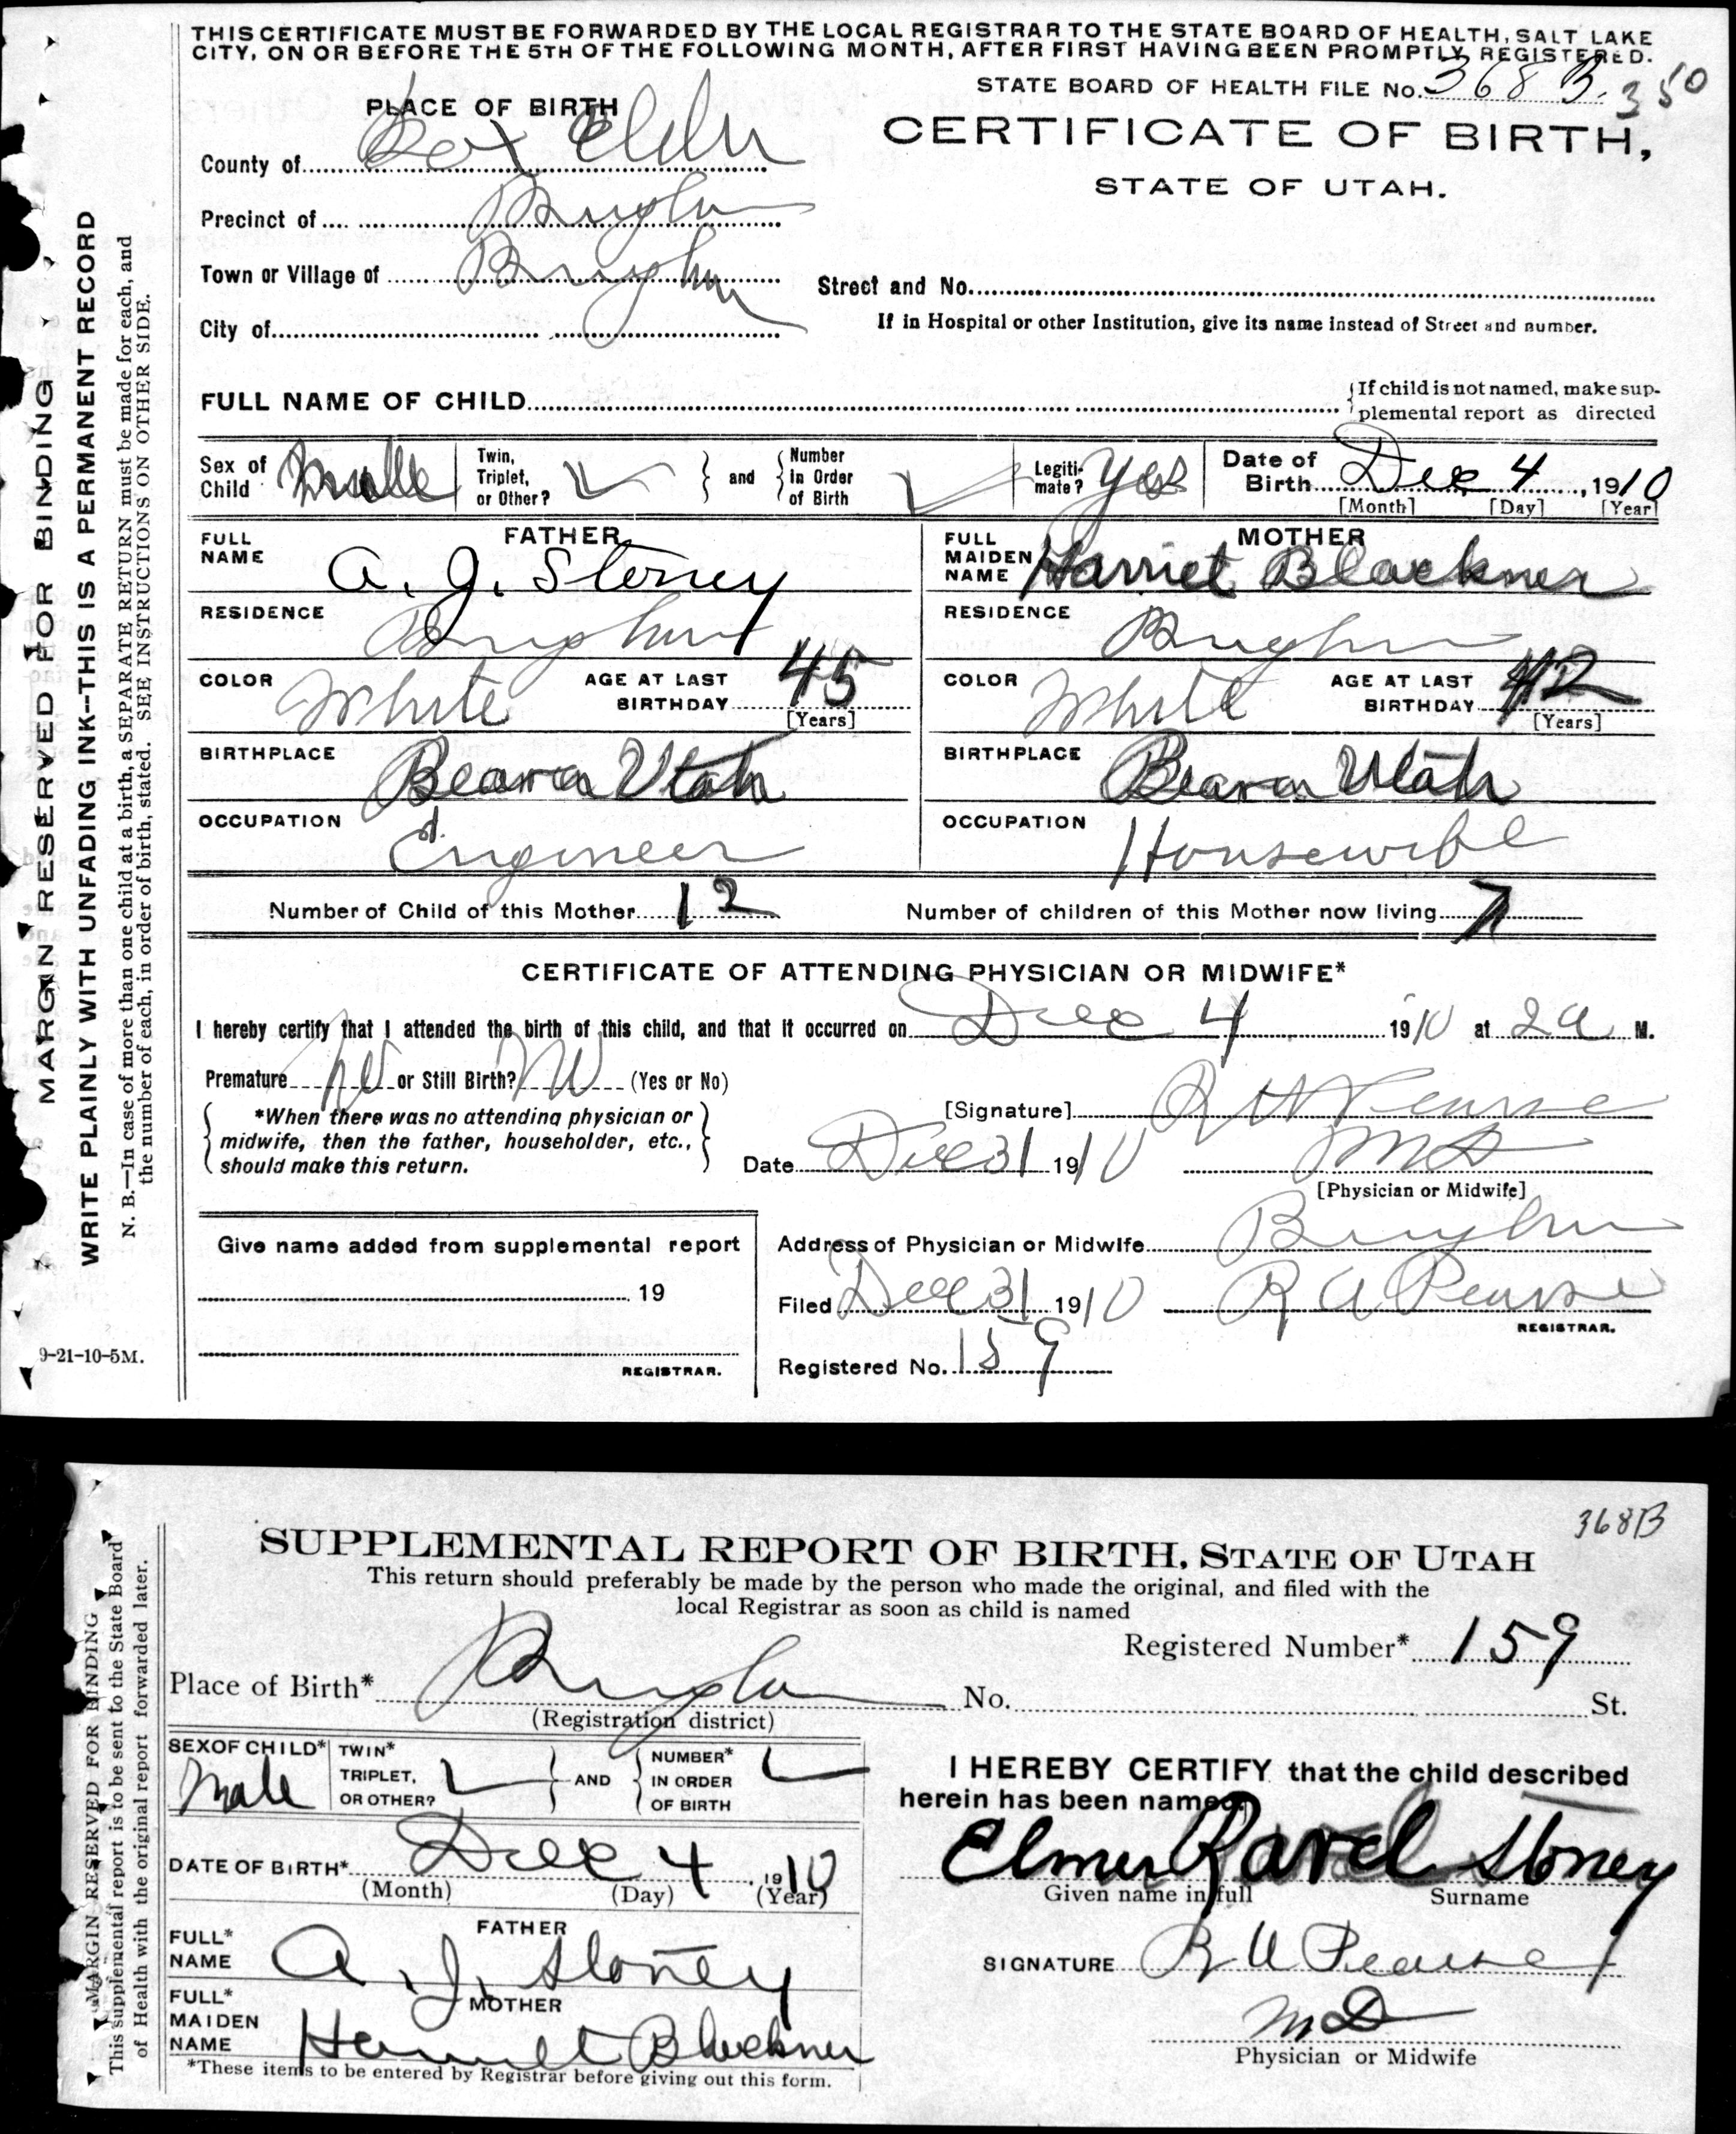 THIS CERTIFICATE MUST BE FORWARDED BY THE LOCAL REGISTRAR TO THE STATE BOARD OF HEALTH, SALT LAKE
CITY, ON OR BEFORE THE 5TH OF THE FOLLOWING MONTH, AFTER FIRST HAVING BEEN PROMPTLY REGISTERED.
STATE BOARD OF HEALTH FILE No. 368 B. 350
PLACE OF BIRTH
CERTIFICATE OF BIRTH,
STATE OF UTAH.
County of Box Elder
Precinct of Brigham
Town or Village of Brigham
Street and No.
City of
If in Hospital or other Institution, give its name instead of Street and number.
FULL NAME OF CHILD
If child is not named, make sup-
plemental report as directed
Sex of Child Male
Twin, Triplet, or Other?
and
Number in Order of Birth
Legiti-mate? Yes
Date of Birth Dec 4, 1910
[Month] [Day] [Year]
FATHER
FULL NAME A. J. Stoney
RESIDENCE Brigham
COLOR White
AGE AT LAST BIRTHDAY 45
[Years]
BIRTHPLACE Beaver Utah
OCCUPATION Engineer
MOTHER
FULL MAIDEN NAME Harriet Blackner
RESIDENCE Brigham
COLOR White
AGE AT LAST BIRTHDAY 42
[Years]
BIRTHPLACE Beaver Utah
OCCUPATION Housewife
Number of Child of this Mother 12
Number of children of this Mother now living 7
CERTIFICATE OF ATTENDING PHYSICIAN OR MIDWIFE*
I hereby certify that I attended the birth of this child, and that it occurred on Dec 4 1910 at 2 a M.
Premature No or Still Birth? No (Yes or No)
*When there was no attending physician or
midwife, then the father, householder, etc.,
should make this return.
[Signature] R A Pearse
Date Dec 31 1910 MD
[Physician or Midwife]
Give name added from supplemental report
19
REGISTRAR.
Address of Physician or Midwife Brigham
Filed Dec 31 1910 R A Pearse
REGISTRAR.
Registered No. 159
MARGIN RESERVED FOR BINDING
WRITE PLAINLY WITH UNFADING INK--THIS IS A PERMANENT RECORD
N. B.—In case of more than one child at a birth, a SEPARATE RETURN must be made for each, and
the number of each, in order of birth, stated. SEE INSTRUCTIONS ON OTHER SIDE.
9-21-10-5M.
368B
SUPPLEMENTAL REPORT OF BIRTH, STATE OF UTAH
This return should preferably be made by the person who made the original, and filed with the
local Registrar as soon as child is named
Registered Number* 159
Place of Birth* Brigham No. St.
(Registration district)
SEX OF CHILD* Male
TWIN* TRIPLET, OR OTHER?
AND
NUMBER* IN ORDER OF BIRTH
DATE OF BIRTH* Dec 4, 1910
(Month) (Day) (Year)
FATHER
FULL* NAME A. J. Stoney
MOTHER
FULL* MAIDEN NAME Harriet Blackner
*These items to be entered by Registrar before giving out this form.
I HEREBY CERTIFY that the child described
herein has been named:
Elmer Ravel Stoney
Given name in full Surname
SIGNATURE R A Pearse
MD
Physician or Midwife
MARGIN RESERVED FOR BINDING
This supplemental report is to be sent to the State Board
of Health with the original report forwarded later.